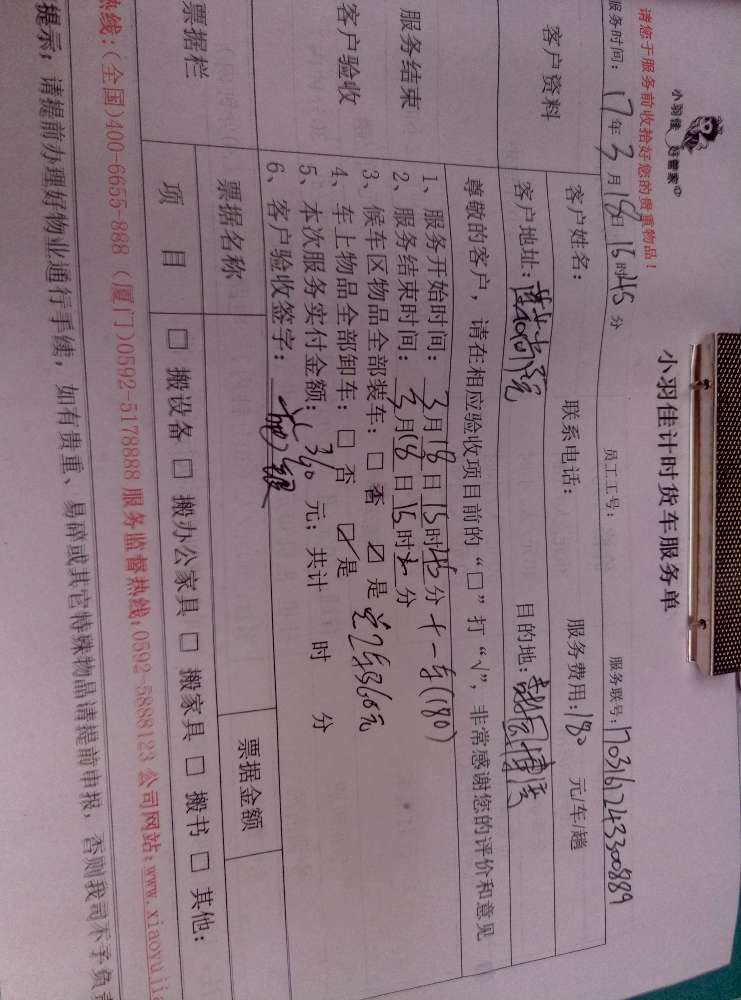 小羽佳 好管家
小羽佳计时货车服务单
请您于服务前收拾好您的贵重物品！
服务时间：17年3月18日15时45分 员工工号： 服务联号：1703161243300889
客户资料
客户姓名： 联系电话： 服务费用：180 元/车/趟
客户地址： 目的地：
尊敬的客户，请在相应验收项目前的“□”打“√”，非常感谢您的评价和意见
服务结束
客户验收
1、服务开始时间：3月18日15时45分 十一车(180)
2、服务结束时间：3月18日15时分
3、候车区物品全部装车：□ 否 ☑ 是 2车360元
4、车上物品全部卸车：□ 否 ☑ 是
5、本次服务实付金额：360 元；共计 时 分
6、客户验收签字：
票据栏
票据名称 票据金额
项 目 □ 搬设备 □ 搬办公家具 □ 搬家具 □ 搬书 □ 其他：
热线：(全国)400-6655-888 (厦门)0592-5178888 服务监督热线：0592-5888123 公司网站：www.xiaoyujia
提示：请提前办理好物业通行手续，如有贵重、易碎或其它特殊物品请提前申报，否则我司不予负责